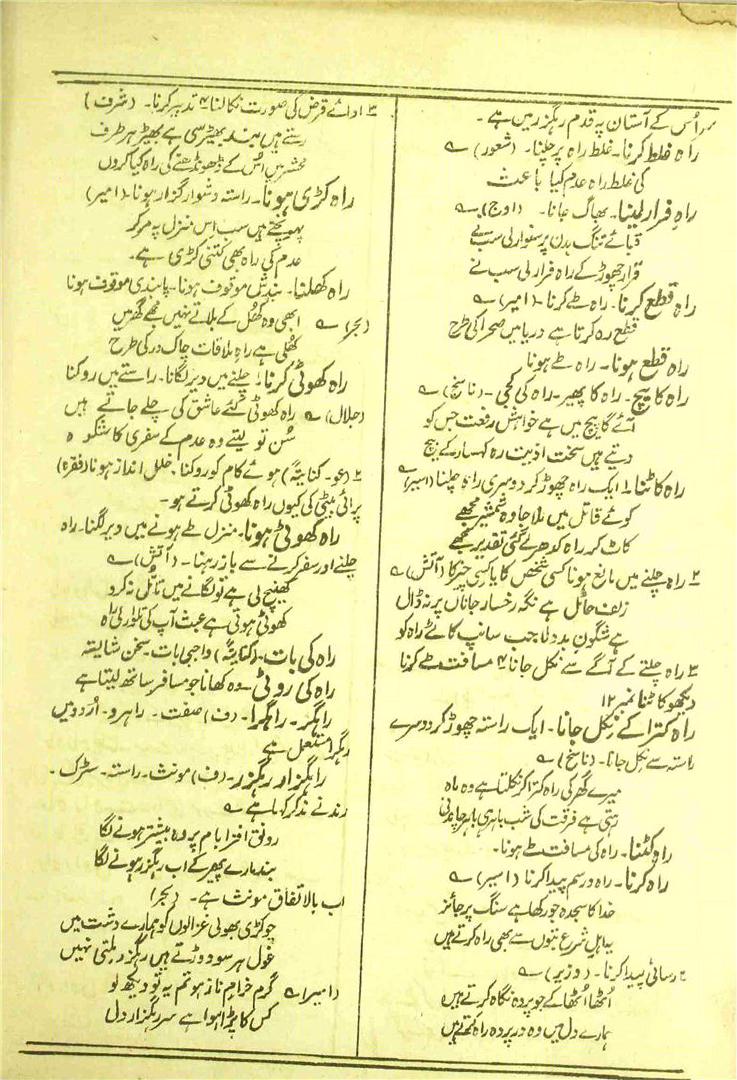 سر اُس کے آستان پہ قدم رہگزر میں ہے ۔
راہ غلط کرنا۔ غلط راہ پر چلنا۔ (شعور) ؎
کی غلط راہ عدم کیا باعث
راہِ فرار لینا۔ بھاگ جانا۔ (اوج) ؎
قبائے تنگ بدن پر سنواری سب نے
قرار چھوڑ کے راہ فرار لی سب نے
راہ قطع کرنا۔ راہ طے کرنا۔ (امیر) ؎
قطع رہ کرتا ہے دریا میں صحرا کی طرح
راہ قطع ہونا۔ راہ طے ہونا
راہ کا پیچ۔ راہ کا پھیر۔ راہ کی کجی ۔ (ناسخ) ؎
آئے گا پیچ میں ہے خواہش رفعت جس کو
دیتے ہیں سخت اذیت رہ کہسار کے پیچ
راہ کاٹنا۔ ۱ ایک راہ چھوڑ کر دوسری راہ چلنا (اسیر) ؎
کوئے قاتل میں ملا جادہ شمشیر مجھے
کاٹ کر راہ کو ھر لے گئی تقدیر مجھے
۲ راہ چلنے میں مانع ہونا کسی شخص کا یا کسی چیز کا (آتش) ؎
زلف حائل ہے نگہ رخسار جاناں پر نہ ڈال
ہے شگون بد دلا جب سانپ کاٹے راہ کو
۳ راہ چلتے کے آگے سے نکل جانا ۴ مسافت طے کرنا
دیکھو کاٹنا نمبر ۱۲
راہ کترا کے نکل جانا۔ ایک راستہ چھوڑ کر دوسرے
راستہ سے نکل جانا۔ (ناسخ) ؎
میرے گھر کی راہ کترا کر نکلتا ہے وہ ماہ
رہتی ہے فرقت کی شب باہر ہی باہر چاندنی
راہ کٹنا۔ راہ کی مسافت طے ہونا۔
راہ کرنا۔ راہ و رسم پیدا کرنا (اسیر) ؎
خدا کا سجدہ جو رکھا ہے سنگ پر جائز
یہ اہلِ شرع بتوں سے بھی راہ کرتے ہیں
۲ رسائی پیدا کرنا۔ (وزیر) ؎
اُٹھا اُٹھا کے جو پردہ نگاہ کرتے ہیں
ہمارے دل میں وہ در پردہ راہ کرتے ہیں
۳ ادائے قرض کی صورت نکالنا ۴ تدبیر کرنا۔ (شرف)
رستے میں ہیں بھیڑ سی ہے بھیڑ ہر طرف
محشر میں اُس کے ڈھونڈھنے کی راہ کیا کروں
راہ کڑی ہونا۔ راستہ دشوار گزار ہونا۔ (امیر)
پہونچتے ہیں سب اس منزل پہ مر کر
عدم کی راہ بھی کتنی کڑی ہے۔
راہ کھلنا۔ بندش موقوف ہونا۔ پابندی موقوف ہونا
(بحر) ؎ ابھی وہ کھل کے بلاتے نہیں مجھے گھر میں
کھلی ہے راہ ملاقات چاک در کی طرح
راہ کھوٹی کرنا۔ ۱ چلنے میں دیر لگانا۔ راستے میں روکنا
(جلال) ؎ راہ کھوٹی کئے عاشق کی چلے جاتے ہیں
سُن تو لیتے وہ عدم کے سفری کا شکوہ
۲ (عو۔ کنایتہً) ہوئے کام کو روکنا۔ خلل انداز ہونا (فقرہ)
پرائی بیٹی کی کیوں راہ کھوٹی کرتے ہو۔
راہ کھوٹی ہونا۔ منزل طے ہونے میں دیر لگنا۔ راہ
چلنے اور سفر کرنے سے باز رہنا۔ (آتش) ؎
کھینچ لی ہے تو لگانے میں تامل نہ کرو
کھوٹی ہوتی ہے عبث آپ کی تلوار کی راہ
راہ کی بات۔ (کنایتہً) واجبی بات۔ سخن شایستہ
راہ کی روٹی۔ وہ کھانا جو مسافر ساتھ لیتا ہے
راہگر۔ راہگرا۔ (ف) صفت۔ راہرو۔ اُردو میں
رہگرا مستعمل ہے
راہگزار۔ رہگزر۔ (ف) مونث۔ راستہ۔ سڑک۔
رند نے مذکر کہا ہے ؎
رونق افزا بام پر وہ بیشتر ہونے لگا
بند مارے پھیر کے اب رہگزر ہونے لگا
اب بالاتفاق مونث ہے۔ (بحر)
چوکڑی بھولی غزالوں کو ہمارے دشت میں
غول ہر سو دوڑتے ہیں رہگزر ملتی نہیں
(امیر) ؎ گرم خرام ناز ہو تم یہ تو دیکھ لو
کس کا پڑا ہوا ہے سر رہگزار دل